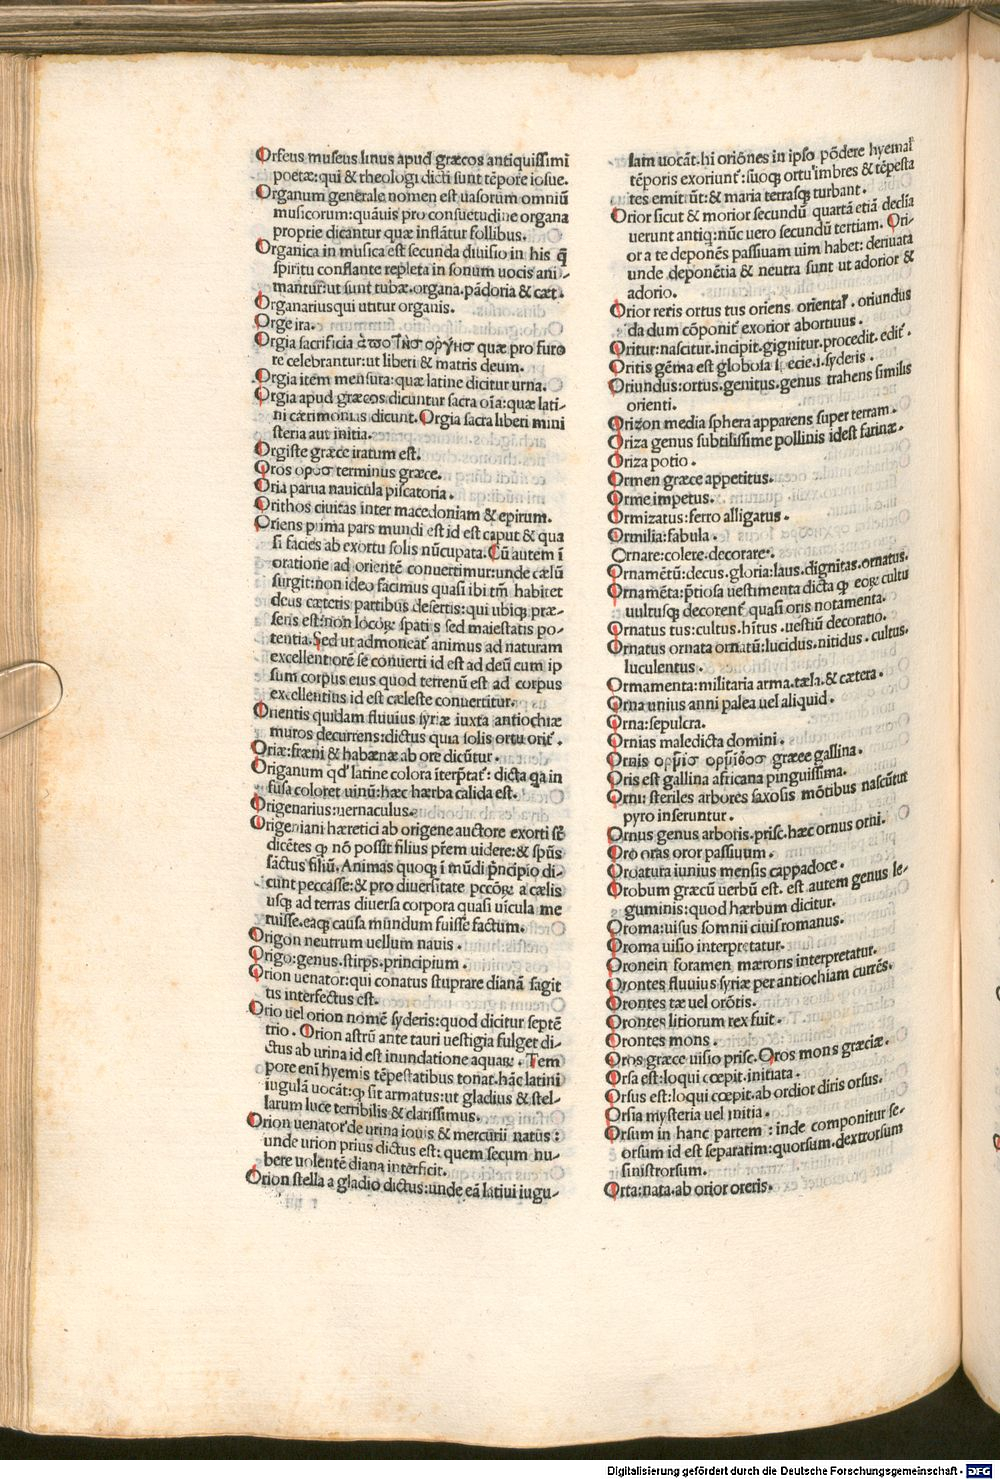 Orfeus museus linus apud græcos antiquissimi
poetæ:qui & theologi dicti sunt tēpore iosue.
Organum generale nomen est uasorum omniū
musicorum:quāuis pro consuetudine organa
proprie dicantur quæ inflātur follibus.
Organica in musica est secunda diuisio in his q̄
spiritu conflante repleta in sonum uocis ani-
mantur:ut sunt tubæ.organa.pādoria & cæt.
Organarius:qui utitur organis.
Orge ira.
Orgia sacrificia quæ pro furo
re celebrantur:ut liberi & matris deum.
Orgia item mensura:quæ latine dicitur urna.
Orgia apud græcos dicuntur sacra oīa:quæ lati-
ni cærimonias dicunt.Orgia sacra liberi mini
steria aut initia.
Orgiste græce iratum est.
Oros οροσ terminus græce.
Oria parua nauicula piscatoria.
Orithos ciuitas inter macedoniam & epirum.
Oriens prima pars mundi est id est caput & qua
si facies ab exortu solis nūcupata.Cū autem ī
oratione ad orientē conuertimur:unde cælū
surgit:non ideo facimus quasi ibi tm̄ habitet
deus cæteris partibus desertis:qui ubiqꝫ præ-
sens est:non locoꝝ spatiis sed maiestatis po-
tentia.Sed ut admoneat᷑ animus ad naturam
excellentiorē se conuerti id est ad deū cum ip
sum corpus eius quod terrenū est ad corpus
excellentius id est cæleste conuertitur.
Orientis quidam fluuius syriæ iuxta antiochiæ
muros decurrens:dictus quia solis ortu orit᷑.
Oriæ:fræni & habænæ ab ore dicūtur.
Origanum qd᷑ latine colora īterp̄tat᷑: dicta q̄a in
fusa coloret uinū:hæc hærba calida est.
Origenarius:uernaculus.
Origeniani hæretici ab origene auctore exorti sē
dicētes ꝙ nō possit filius p̄rem uidere:& sp̄us
sāctus filiū.Animas quoqꝫ ī mūdi p̄ncipio di-
cunt peccasse:& pro diuersitate pccōꝝ a cælis
usqꝫ ad terras diuersa corpora quasi uīcula me
ruisse.eaqꝫ causa mundum fuisse factum.
Origon neutrum uellum nauis.
Origo:genus.stirps.principium.
Orion uenator:qui conatus stuprare dianā sagit
tis interfectus est.
Orio uel orion nomē syderis:quod dicitur septē
trio. Orion astrū ante tauri uestigia fulget di-
ctus ab urina id est inundatione aquaꝝ. Tem
pore enī hyemis tēpestatibus tonat.hāc latini
iugulā uocāt:ꝙ sit armatus:ut gladius & stel-
larum luce terribilis & clarissimus.
Orion uenator de urina iouis & mercurii natus:
unde urion prius dictus est: quem secum nu-
bere uolentē diana interficit.
Orion stella a gladio dictus:unde eā latiui iugu-
lam uocāt.hi oriōnes in ipso pōdere hyemal᷑
tēporis exoriunt᷑:suoqꝫ ortu imbres & tēpesta
tes emittūt:& maria terrasqꝫ turbant.
Orior sicut & morior secundū quartā etiā declīa
uerunt antiq:nūc uero secundū tertiam. Ori-
or a te deponēs passiuam uim habet: deriuata
unde deponētia & neutra sunt ut adorior &
adorio.
Orior reris ortus tus oriens oriental᷑.oriundus
da dum cōponit᷑ exorior abortiuus.
Oritur:nascitur.incipit.gignitur.procedit.edit᷑.
Oritis gēma est globosa specie.i.syderis.
Oriundus:ortus.genitus.genus trahens similis
orienti.
Orizon media sphera apparens super terram.
Oriza genus subtilissime pollinis idest farinæ.
Oriza potio.
Ormen græce appetitus.
Orme impetus.
Ormizatus:ferro alligatus.
Ormilia:fabula.
Ornare:colere.decorare.
Ornamētū:decus.gloria:laus.dignitas.ornatus.
Ornamēta:p̄tiosa uestimenta dicta ꝙ eoꝝ cultu
uultusqꝫ decorent᷑ quasi oris notamenta.
Ornatus tus:cultus.hītus.uestiū decoratio.
Ornatus ornata ornatū:lucidus.nitidus.cultus.
luculentus.
Ormamenta:militaria arma.tæla.& cætera.
Orna unius anni palea uel aliquid.
Orna:sepulcra.
Ornias maledicta domini.
Ornis græce gallina.
Oris est gallina africana pinguissima.
Orni: steriles arbores saxosis mōtibus nascūtut
pyro inseruntur.
Ornus genus arboris.prisc.hæc ornus orni.
Oro oras oror passiuum.
Oroatura iunius mensis cappadoce.
Orobum græcū uerbū est. est autem genus le-
guminis:quod hærbum dicitur.
Oroma:uisus somnii ciuis romanus.
Oroma uisio interpretatur.
Oronein foramen mæroris interpretatur.
Orontes fluuius syriæ per antiochiam currēs.
Orontes tæ uel orōtis.
Orontes litiorum rex fuit.
Orontes mons.
Oros græce uisio prisc.Oros mons græciæ.
Orsa est:loqui cœpit.initiata.
Orsus est:loqui cœpit.ab ordiot diris orsus.
Orsia mysteria uel initia.
Orsum in hanc partem: inde componitur se-
orsum id est separatim:quorsum.dextrorsum
sinistrorsum.
Orta:nata.ab orior oreris.
Digitalisierung gefördert durch die Deutsche Forschungsgemeinschaft - DFG